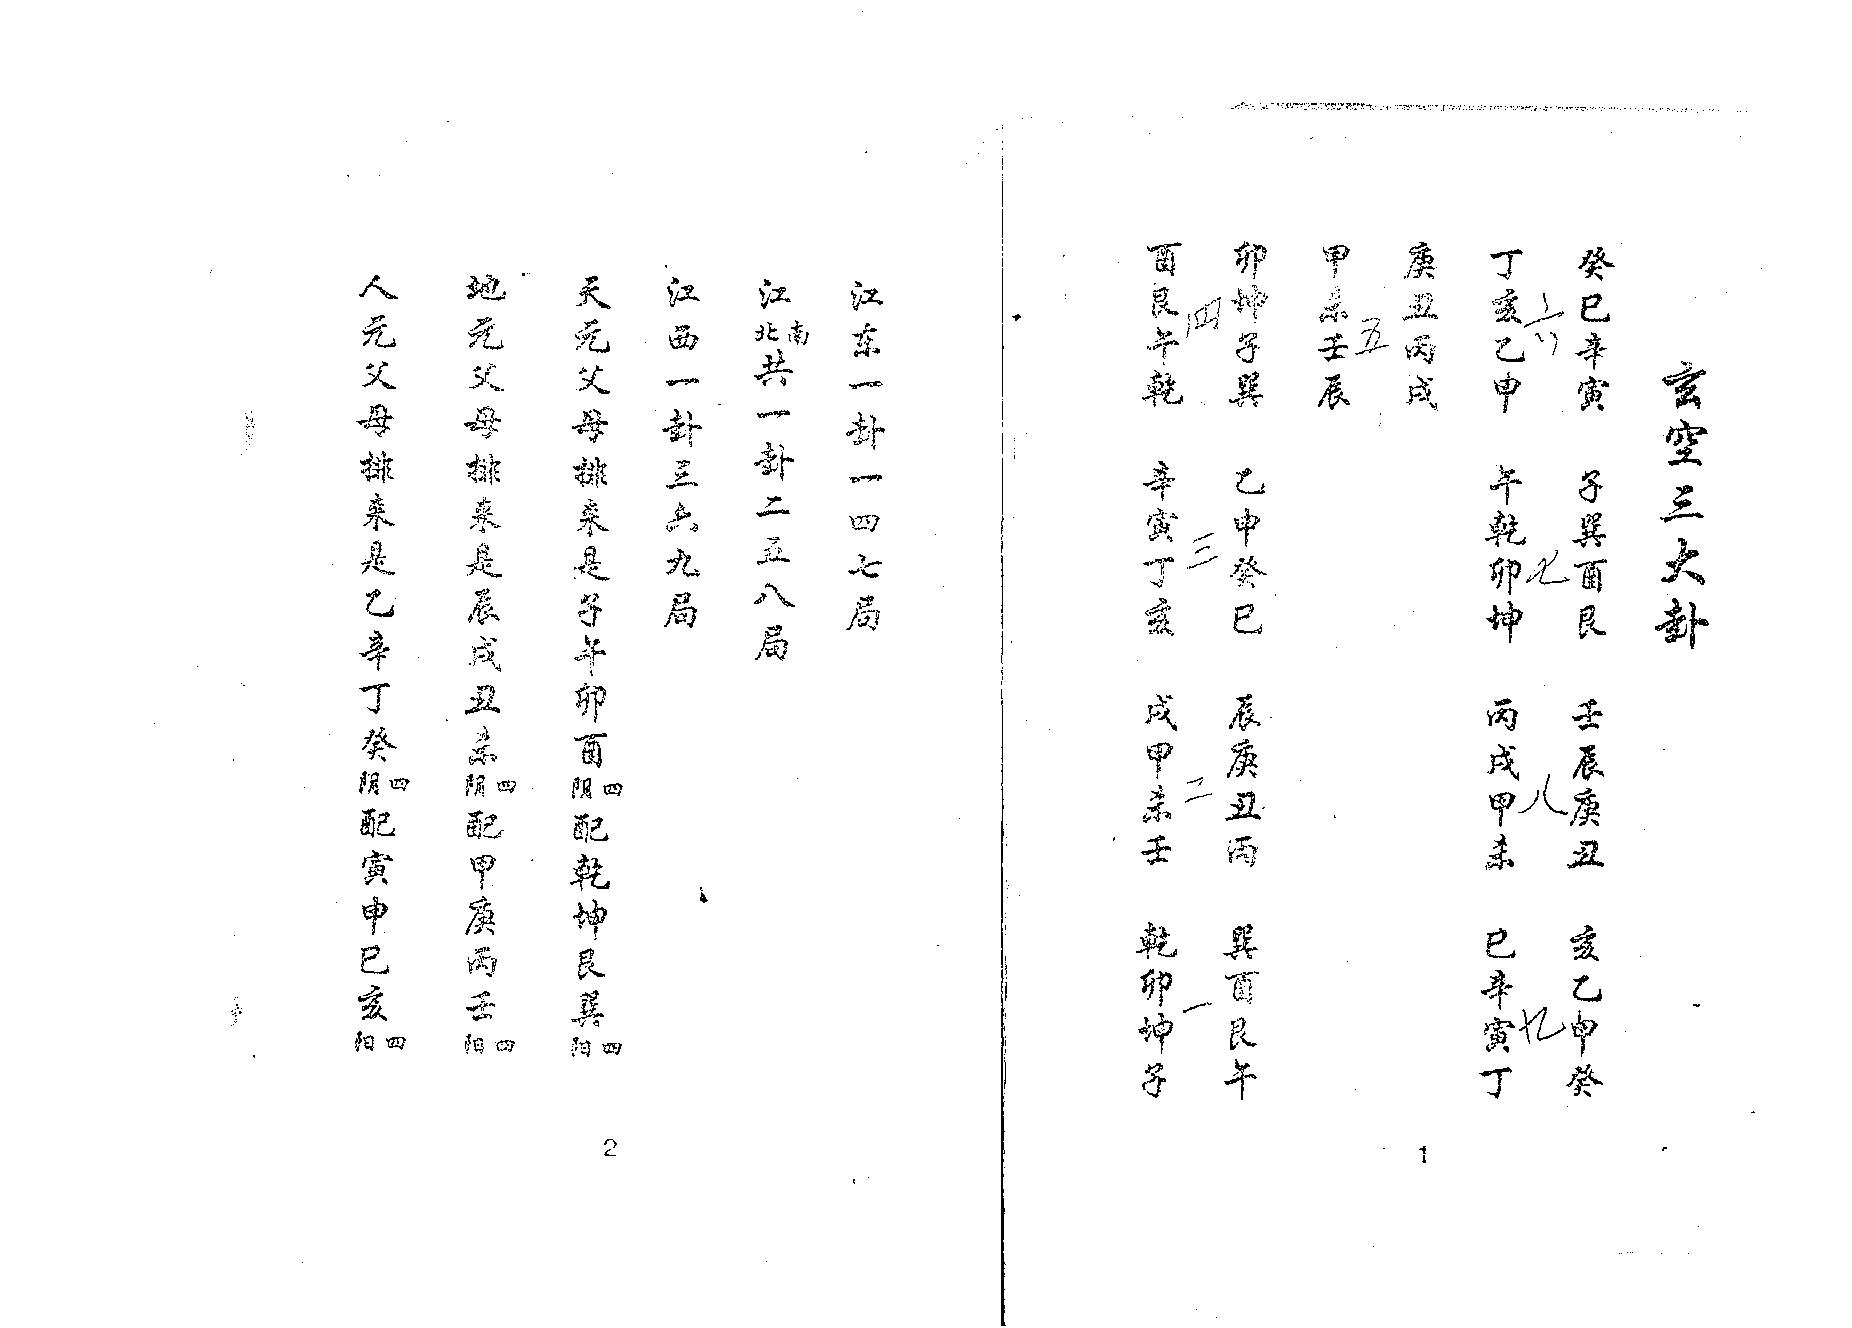 玄空三大卦
癸巳辛寅 子巽酉艮 壬辰庚丑 亥乙申癸
六 七 八 九
丁亥乙申 午乾卯坤 丙戌甲未 巳辛寅丁
庚丑丙戌
五
甲未壬辰
卯坤子巽 乙申癸巳 辰庚丑丙 巽酉艮午
四 三 二 一
酉艮午乾 辛寅丁亥 戌甲未壬 乾卯坤子
1
江东一卦一四七局
江南北共一卦二五八局
江西一卦三六九局
天元父母排来是子午卯酉四阴配乾坤艮巽四阳
地元父母排来是辰戌丑未四阴配甲庚丙壬四阳
人元父母排来是乙辛丁癸四阴配寅申巳亥四阳
2